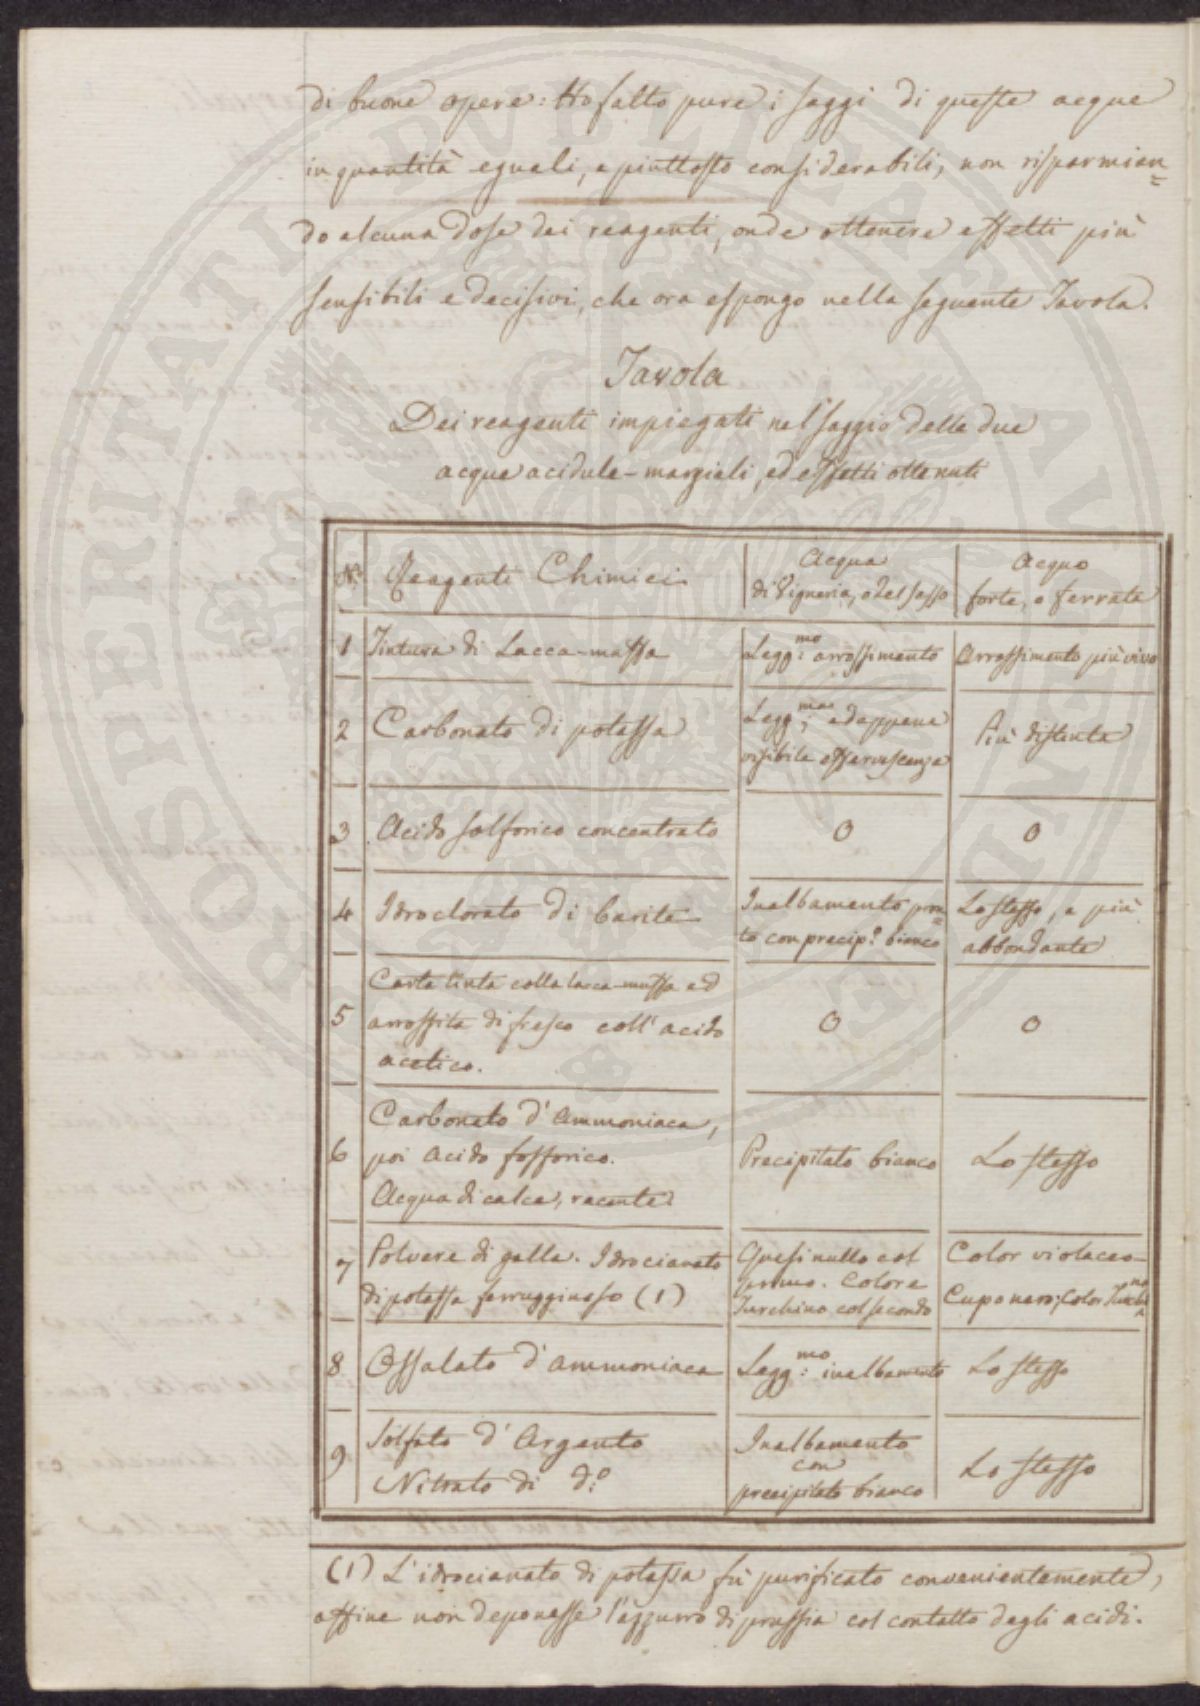 di buone opere: Ho fatto pure i saggi di queste acque
in quantità eguali, e piuttosto considerabili, non risparmian=
do alcuna dose dei reagenti, onde ottenere effetti più
sensibili e decisivi, che ora espongo nella seguente Tavola.
Tavola
Dei reagenti impiegati nel saggio delle due
acque acidule-marziali, ed effetti ottenuti
N.° Reagenti Chimici
Acqua
di Vigneria, o del sasso
Acqua
forte, o ferrata
1 Tintura di Lacca-muffa
Legg:mo arrossimento
Arrossimento più vivo
2 Carbonato di potassa
Legg:ma ed appena
visibile effervescenza
Più distinta
3 Acido solforico concentrato
0
0
4 Idroclorato di barite
Inalbamento pron=
to con precip.° bianco
Lo stesso, e più
abbondante
5 Carta tinta colla lacca-muffa ed
arrossita di fresco coll'acido
acetico.
0
0
6 Carbonato d'Ammoniaca,
poi Acido fosforico.
Acqua di calce, recente
Precipitato bianco
Lo stesso
7 Polvere di galla. Idrocianato
di potassa ferrugginoso (1)
Quasi nullo col
primo. Colore
Turchino col secondo
Color violaceo-
Cupo nero; Color Turchi^no
8 Ossalato d'ammoniaca
Legg:mo inalbamento
Lo stesso
9 Solfato d'Argento
Nitrato di d:°
Inalbamento
con
precipitato bianco
Lo stesso
(1) L'idrocianato di potassa fù purificato convenientemente,
affine non deponesse l'azzurro di prussia col contatto degli acidi.
PROSPERITATI PVBLICAE AVGENDAE